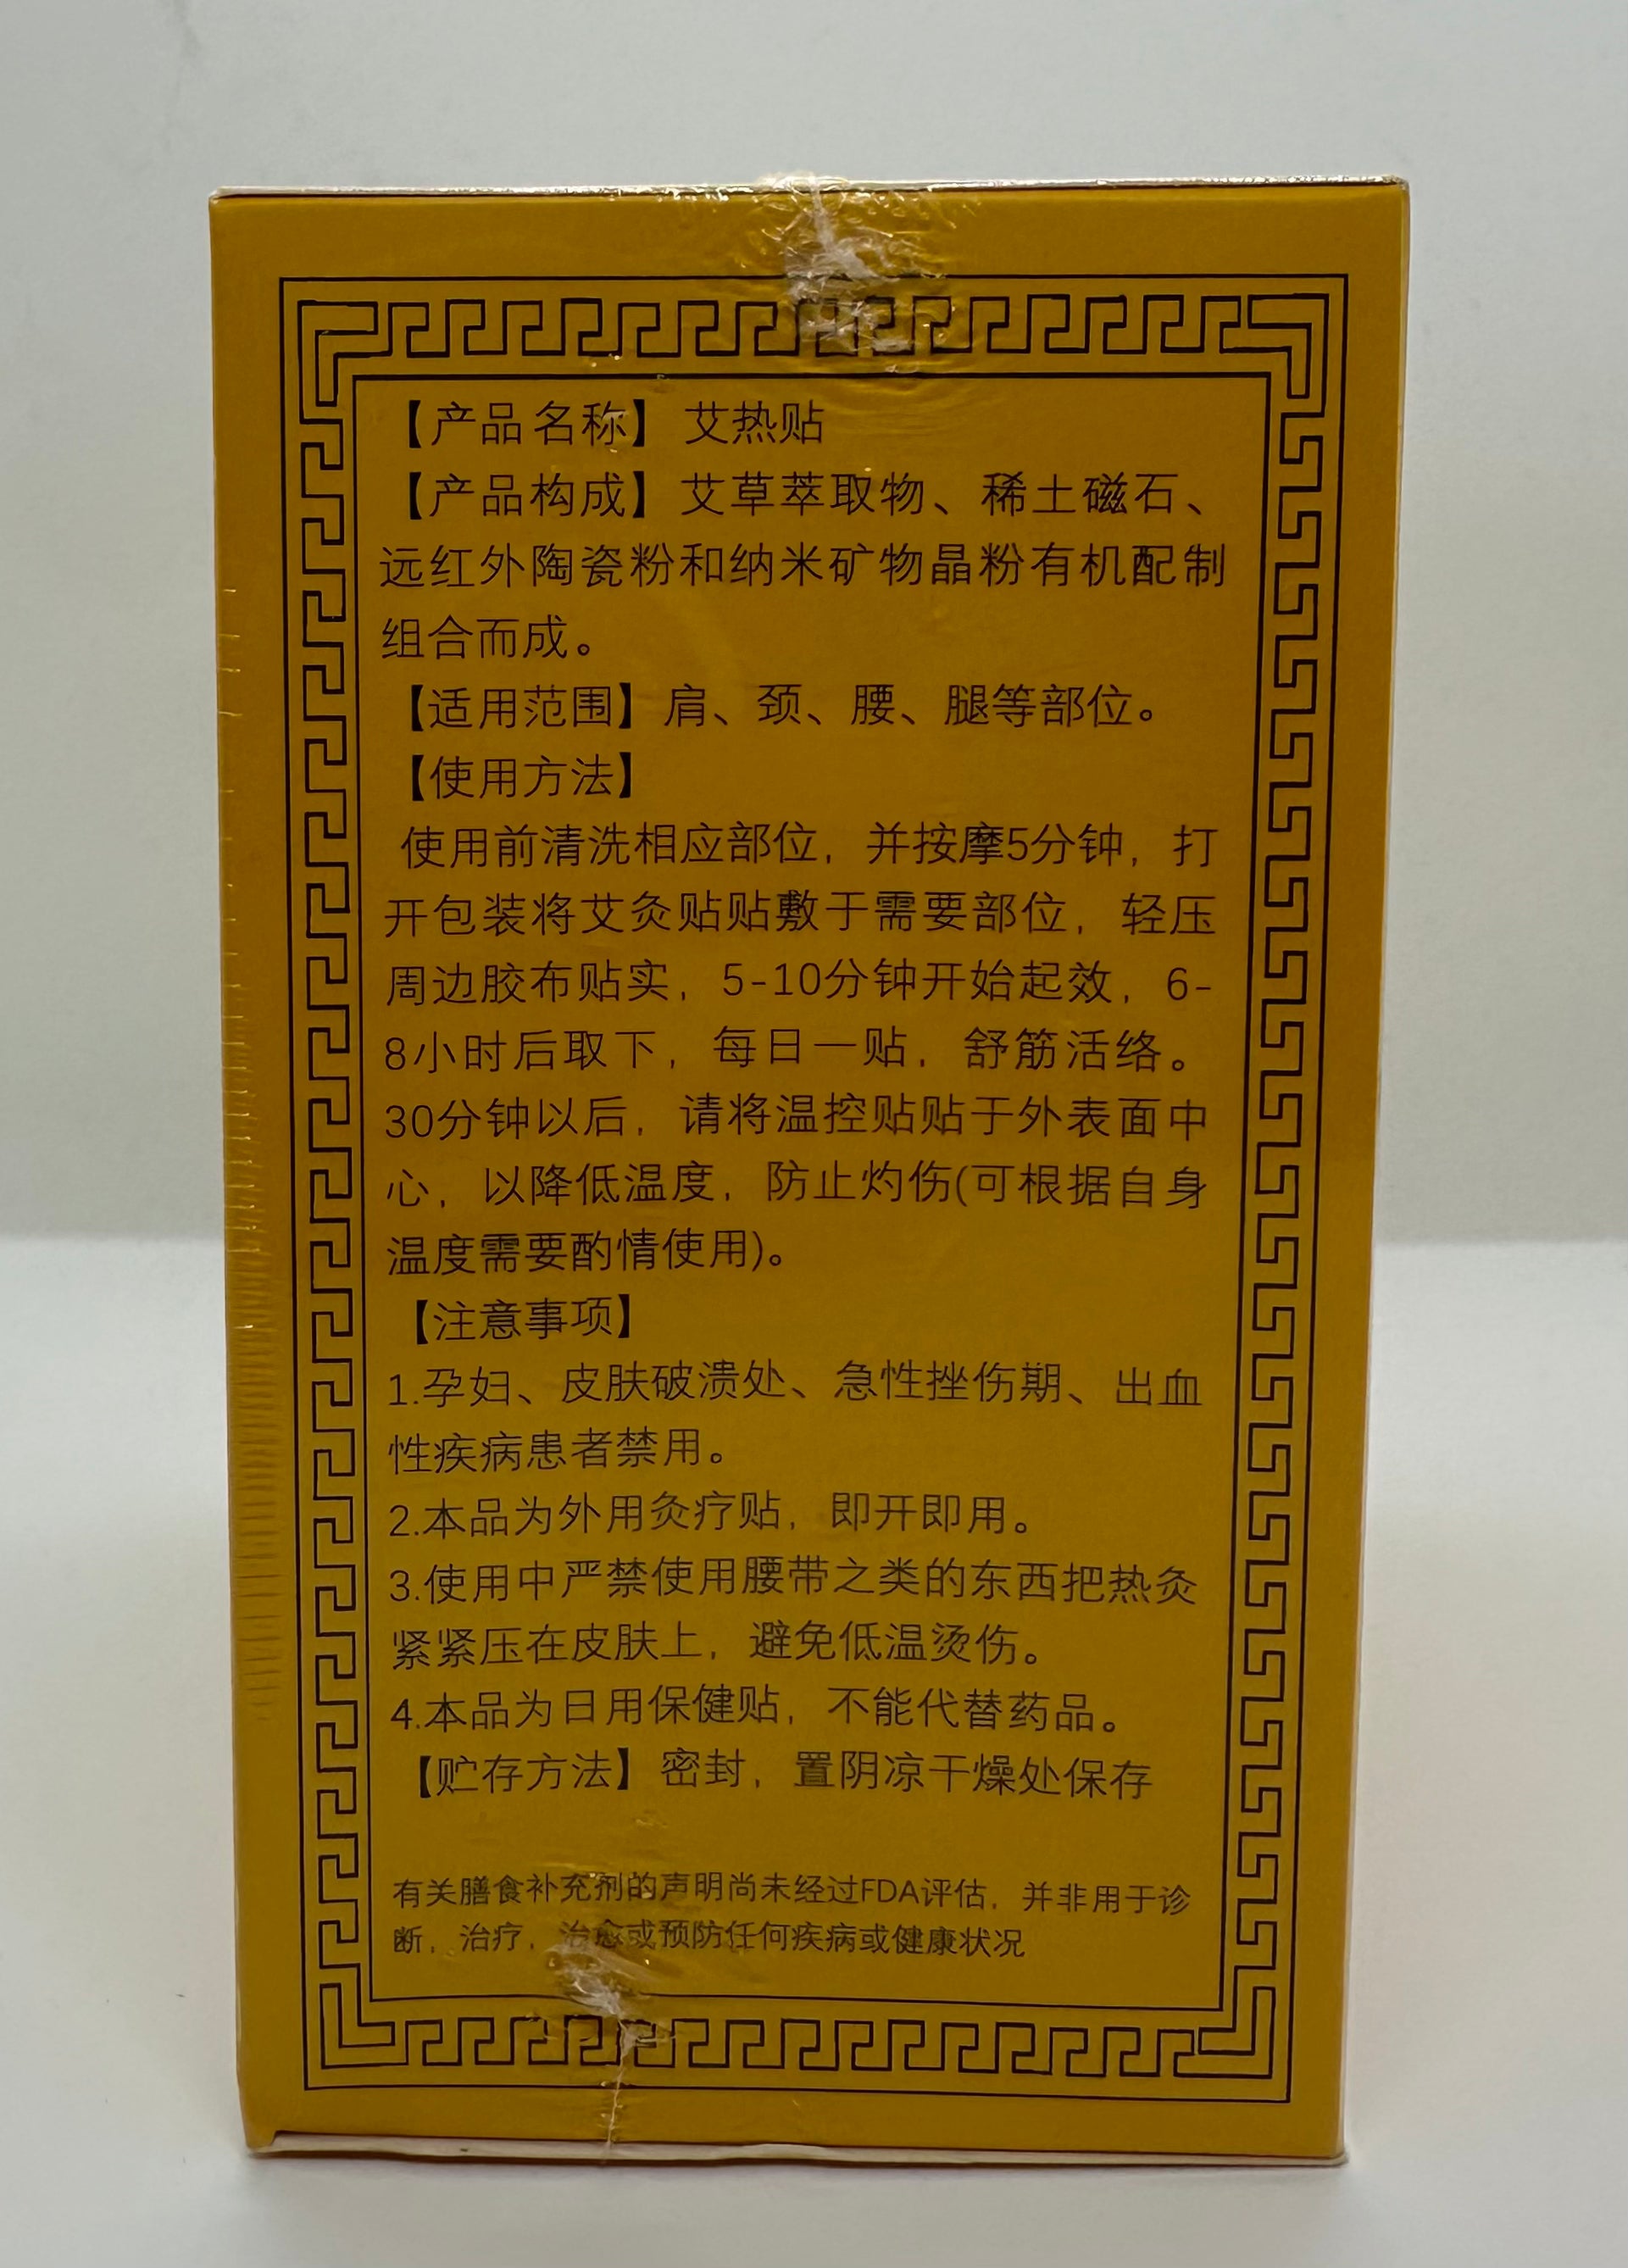 【产品名称】 艾热贴
【产品构成】 艾草萃取物、稀土磁石、
远红外陶瓷粉和纳米矿物晶粉有机配制
组合而成。
【适用范围】肩、颈、腰、腿等部位。
【使用方法】
使用前清洗相应部位，并按摩5分钟，打
开包装将艾灸贴贴敷于需要部位，轻压
周边胶布贴实，5-10分钟开始起效，6-
8小时后取下，每日一贴，舒筋活络。
30分钟以后，请将温控贴贴于外表面中
心，以降低温度，防止灼伤(可根据自身
温度需要酌情使用)。
【注意事项】
1.孕妇、皮肤破溃处、急性挫伤期、出血
性疾病患者禁用。
2.本品为外用灸疗贴，即开即用。
3.使用中严禁使用腰带之类的东西把热灸
紧紧压在皮肤上，避免低温烫伤。
4.本品为日用保健贴，不能代替药品。
【贮存方法】密封，置阴凉干燥处保存
有关膳食补充剂的声明尚未经过FDA评估，并非用于诊
断，治疗，治愈或预防任何疾病或健康状况